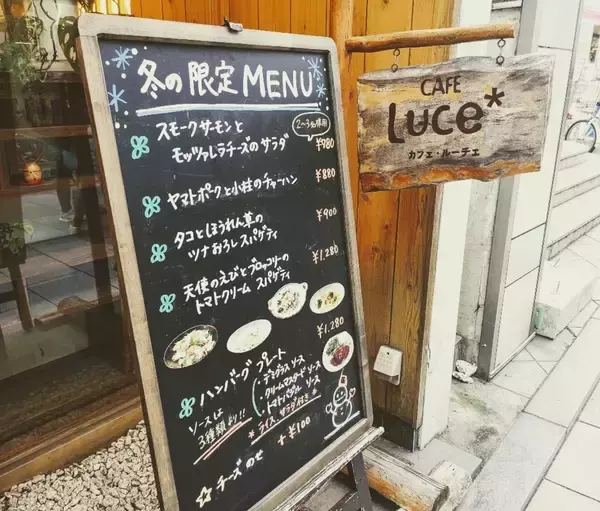 冬の限定 MENU
スモークサーモンと
モッツァレラチーズのサラダ
2〜3名様用
¥980
ヤマトポークと小柱のチャーハン
¥880
タコとほうれん草の
ツナおろしスパゲティ
¥900
天使のえびとブロッコリーの
トマトクリーム スパゲティ
¥1.280
¥1.280
ハンバーグ プレート
ソースは
3種類より!!
・デミグラス ソース
・クリームマスタード ソース
・トマトバジル ソース
*ライス、サラダ付き*
☆チーズのせ +¥100
CAFE
Luce*
カフェ・ルーチェ